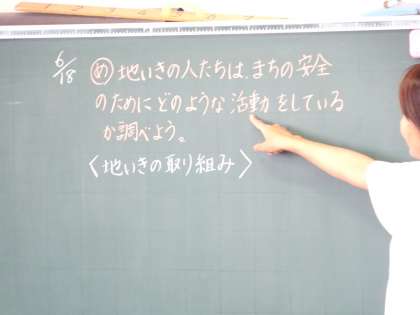 6/18 め 地いきの人たちは、まちの安全
のためにどのような活動をしている
か調べよう。
〈地いきの取り組み〉